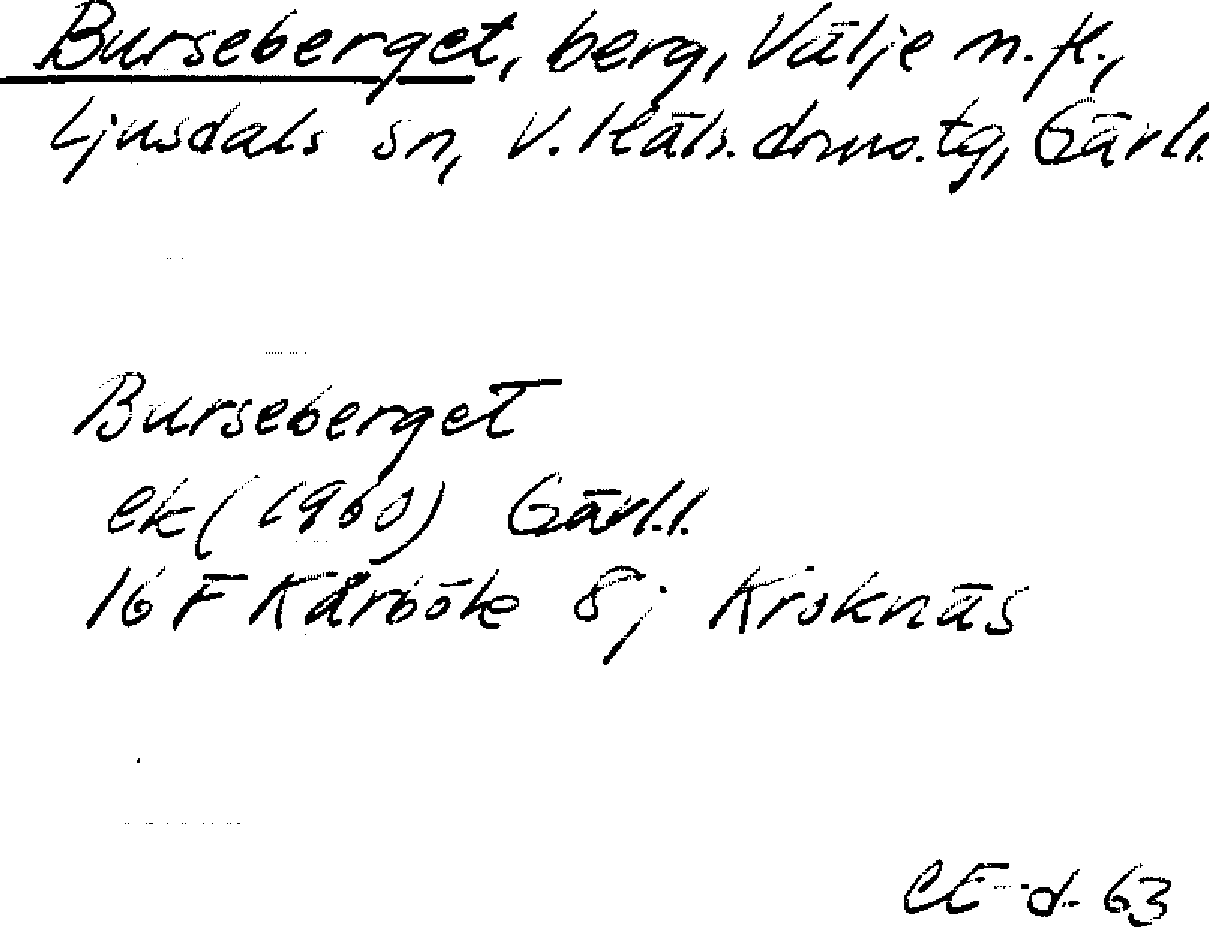 Burseberget, berg, Välje n.fl.,
Ljusdals sn, V. Häls. doms.tg, Gävl.l.
Burseberget
ek (1960) Gävl.l.
16 F Kårböle 8j Kroknäs
CE-d- 63